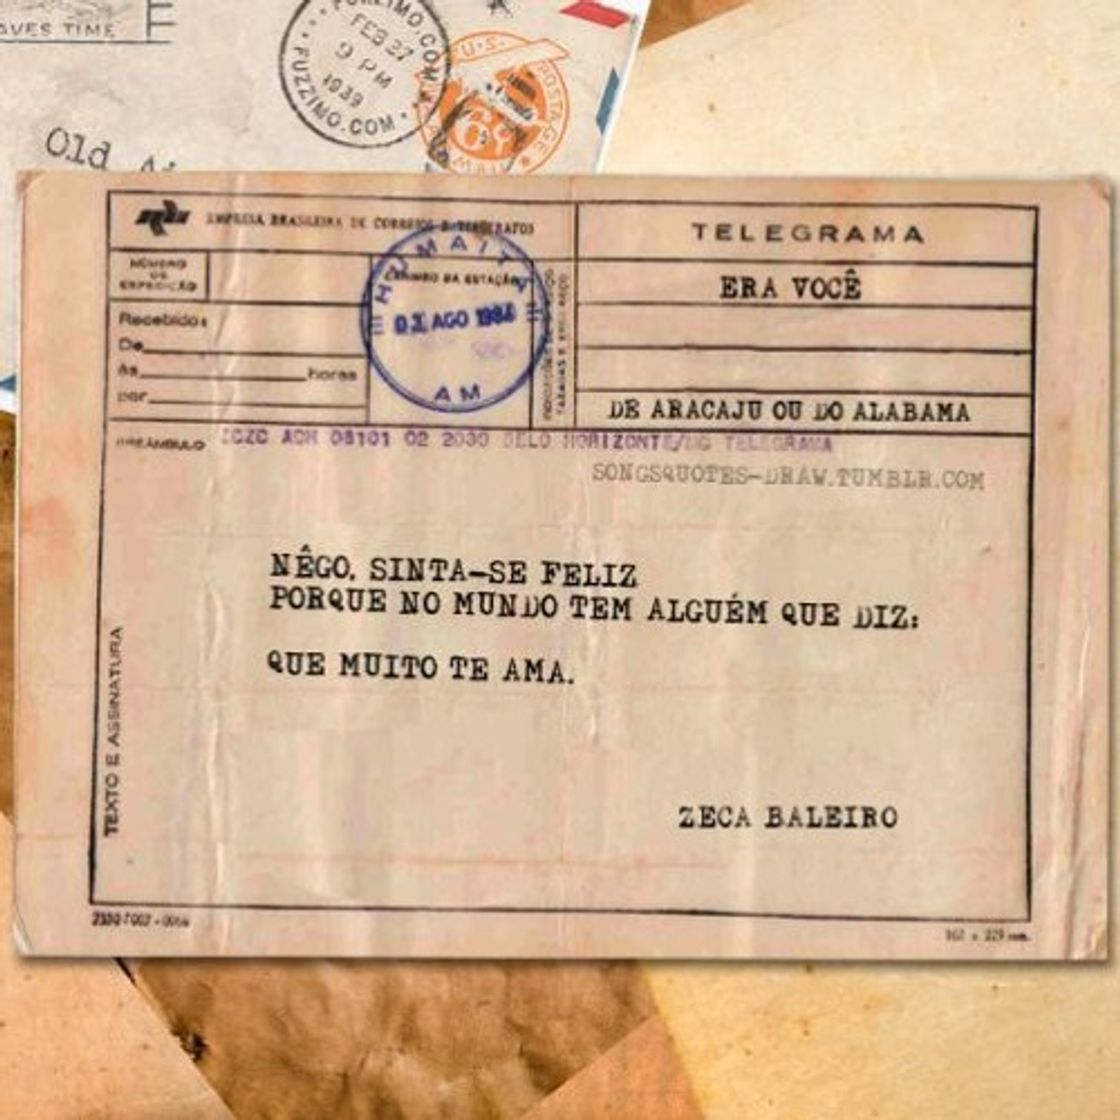 AVES TIME
FUZZIMO.COM
FEB 27
9 PM
1939
FUZZIMO.COM
U.S. POSTAGE
6¢
Old
EMPRESA BRASILEIRA DE CORREIOS E TELÉGRAFOS
TELEGRAMA
NÚMERO
DE
EXPEDIÇÃO
CARIMBO DA ESTAÇÃO
HUMAITA
AGO
AM
ERA VOCÊ
Recebido:
De
às horas
por
DE ARACAJU OU DO ALABAMA
PREÂMBULO
ZCZC ACH 08101 02 2030 BELO HORIZONTE/MG TELEGRAMA
SONGSQUOTES-DRAW.TUMBLR.COM
NÊGO, SINTA-SE FELIZ
PORQUE NO MUNDO TEM ALGUÉM QUE DIZ:
QUE MUITO TE AMA.
TEXTO E ASSINATURA
ZECA BALEIRO